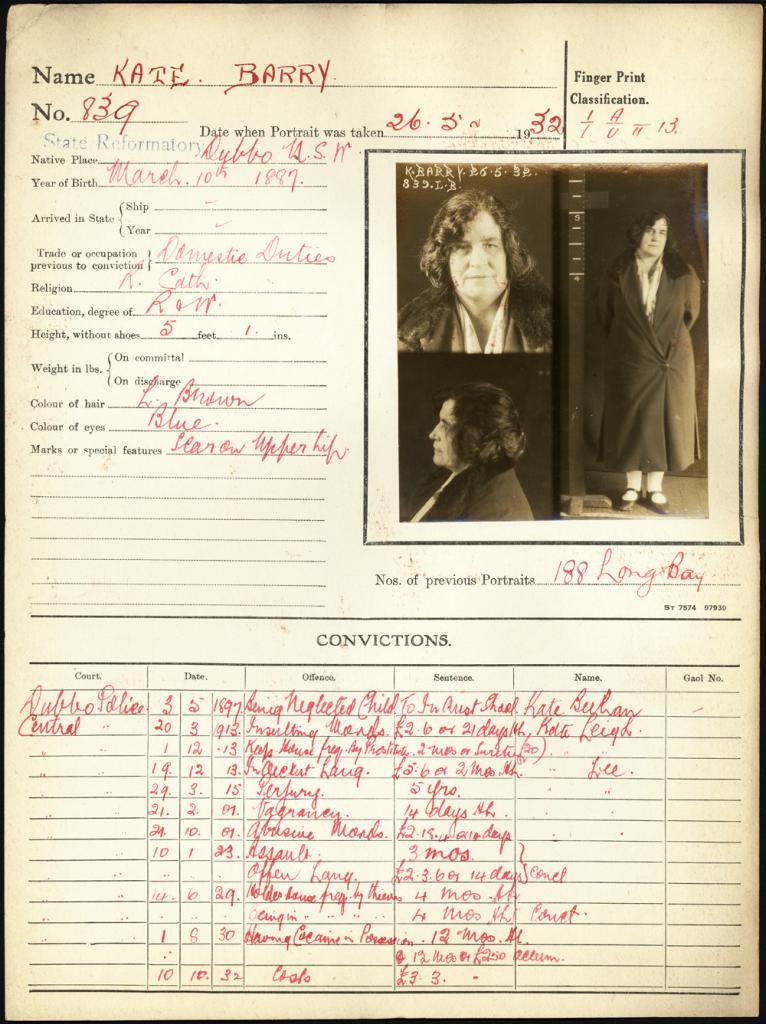 Name KATE. BARRY.
No. 839
Date when Portrait was taken 26. 5. 1932
Finger Print
Classification.
State Reformatory
Native Place Dubbo N.S.W.
Year of Birth March. 10th 1887.
Arrived in State { Ship –
Year –
Trade or occupation
previous to conviction } Domestic Duties
Religion R. Cath.
Education, degree of R & W.
Height, without shoes 5 feet 1. ins.
Weight in lbs. { On committal
On discharge
Colour of hair L. Brown
Colour of eyes Blue.
Marks or special features Scar on Upper Lip
K.BARRY. 26.5.32.
839.L.B.
Nos. of previous Portraits 188 Long Bay
St 7574 97939
CONVICTIONS.
Court. Date. Offence. Sentence. Name. Gaol No.
Dubbo Police 3 5 1897 Being Neglected Child. To Kate Beehan –
Central " 20 3 1913. Insulting Words. £2.6 or 21 days HL. Kate Leigh.
" 1 12 .13 Keep House freq. By Prostitute. 2 mos or
" 19. 12 13. Indecent Lang. £5.6 or 2 Mos. HL " Lee.
" 29. 3. 15 Perjury. 5 yrs. "
" 21. 2. 01. Vagrancy. 14 days HL.
" 21. 10. 01. Abusive Words. £2.
" 10 1 23. Assault. 3 mos. }
Offen Lang. £2.3.6 or 14 days } Conct
" 14. 6 29. House freq. by thieves 4 mos. HL
" " " " being in " " " 4 Mos HL Conct.
" 1 8 30 Having Cocaine in Possession. 12 Mos. HL.
& 12 Mos or £250 accum.
10 10. 32 Costs £3.3. -